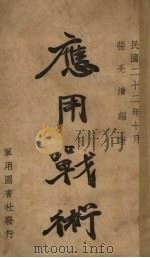 民國二十二年十月
張亮清
應用戰術
軍用圖書社發行